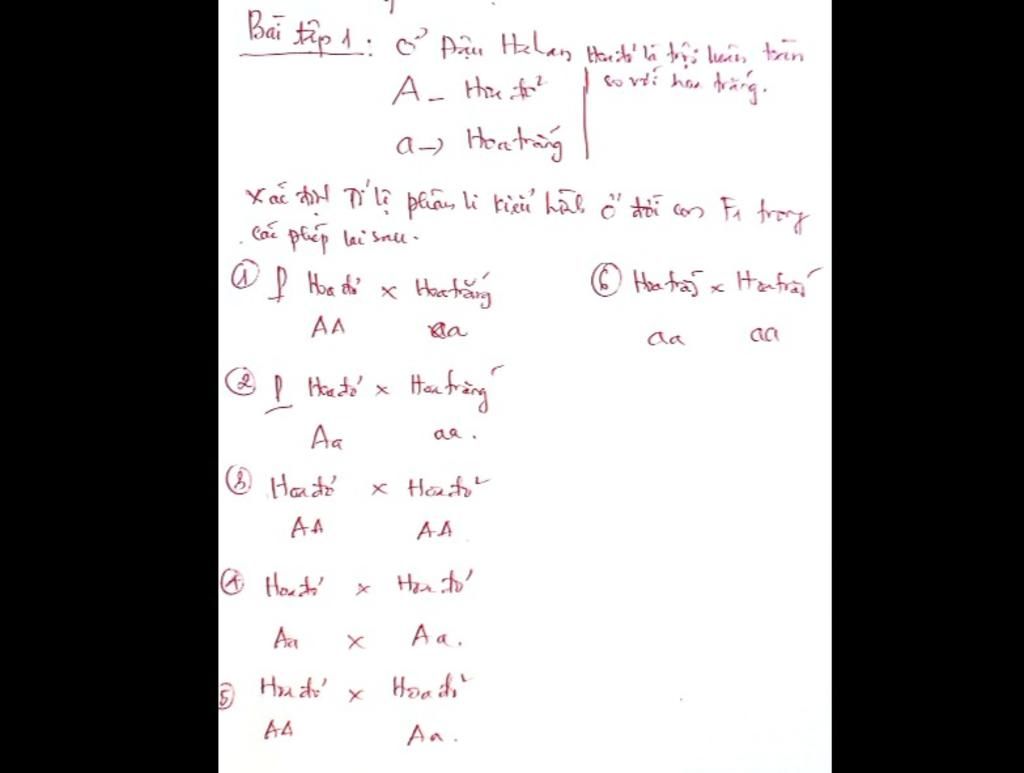 Bài tập 1: Ở Đậu Hà Lan Hoa đỏ là trội hoàn toàn
A - Hoa đỏ so với hoa trắng.
a → Hoa trắng
Xác định Tỉ lệ phân li kiểu hình ở đời con F1 trong
các phép lai sau.
① P Hoa đỏ x Hoa trắng
AA aa
② P Hoa đỏ x Hoa trắng
Aa aa.
③ Hoa đỏ x Hoa đỏ
AA AA
④ Hoa đỏ x Hoa đỏ
Aa x Aa.
⑤ Hoa đỏ x Hoa đỏ
AA Aa.
⑥ Hoa trắng x Hoa trắng
aa aa